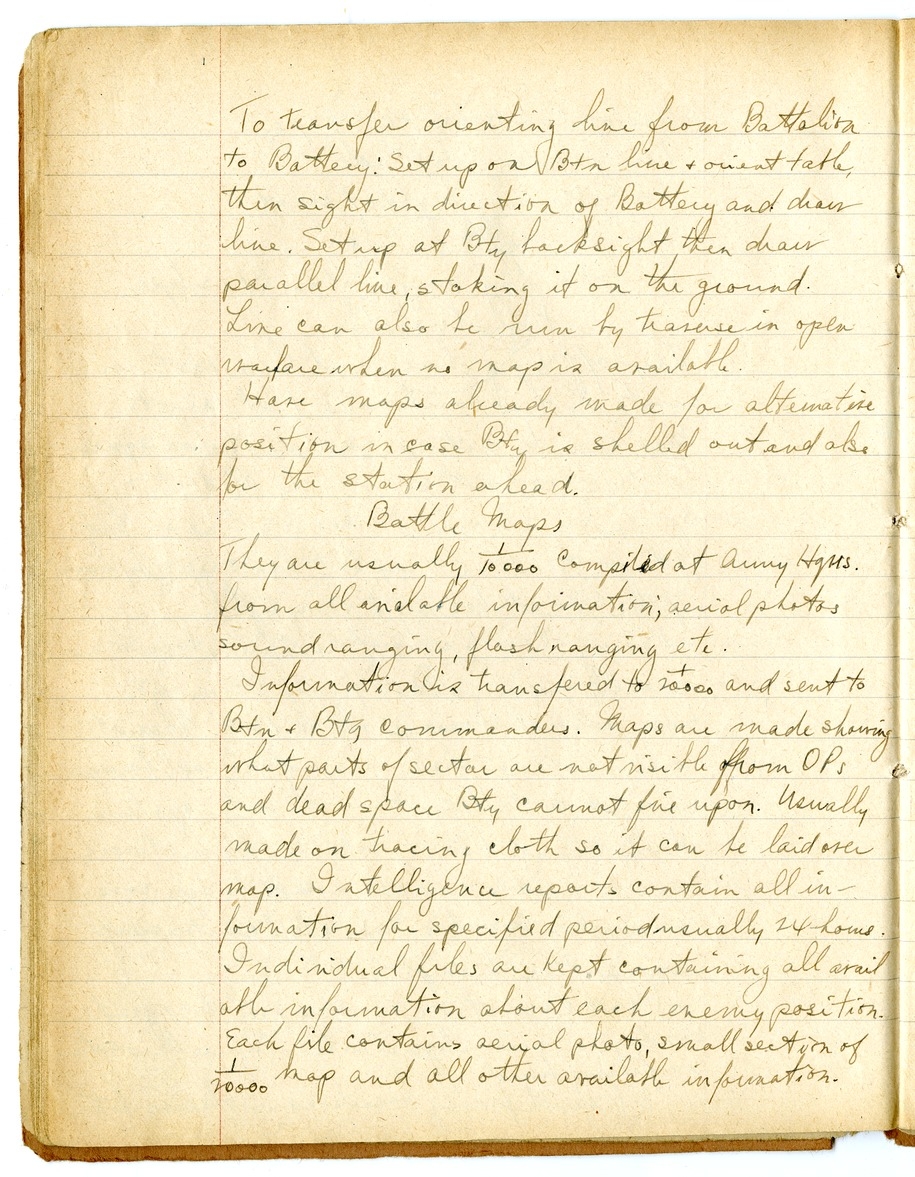 To transfer orienting line from Battalion
to Battery: Set up on Btn line + orient table,
then sight in direction of Battery and draw
line. Set up at Bty backsight then draw
parallel line, staking it on the ground.
Line can also be run by traverse in open
warfare when no map is available.
Have maps already made for alternative
position in case Bty is shelled out and also
for the station ahead.
Battle Maps
They are usually 1/10000 compiled at Army Hqrs.
from all available information; aerial photos
sound ranging, flash ranging etc.
Information is transfered to 1/20000 and sent to
Btn + Bty commanders. Maps are made showing
what parts of sector are not visible from OPs
and dead space Bty cannot fire upon. Usually
made on tracing cloth so it can be laid over
map. Intelligence reports contain all in-
formation for specified period usually 24 hours.
Individual files are kept containing all avail
able information about each enemy position.
Each file contains aerial photo, small section of
1/20000 map and all other available information.